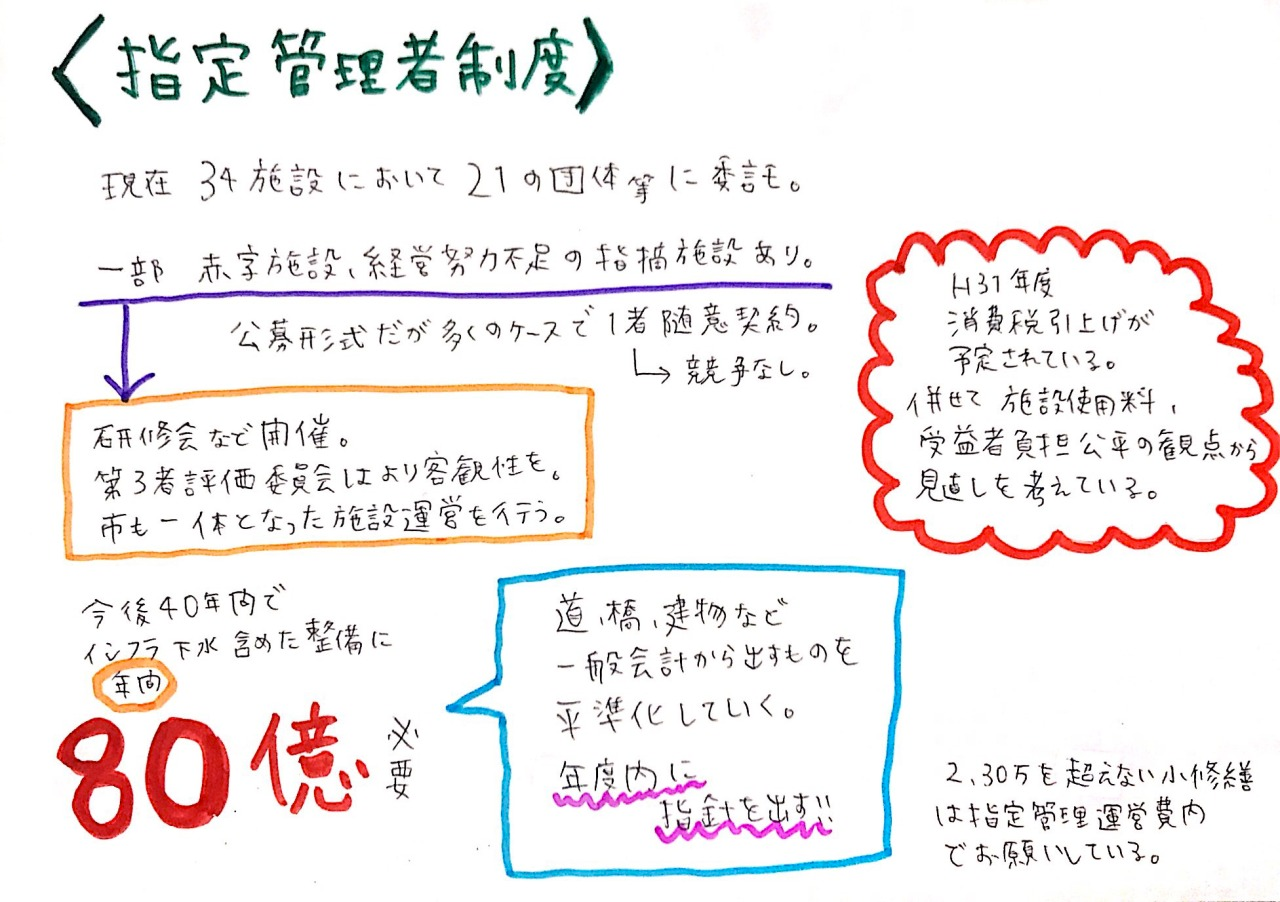 〈指定管理者制度〉
現在 34施設において 21の団体等に委託。
一部 赤字施設、経営努力不足の指摘施設あり。
公募形式だが多くのケースで1者随意契約。
↳ 競争なし。
研修会など開催。
第3者評価委員会はより客観性を。
市も一体となった施設運営を行う。
H31年度
消費税引上げが
予定されている。
併せて 施設使用料、
受益者負担公平の観点から
見直しを考えている。
今後40年内で
インフラ下水含めた整備に
年間
80億必要
道、橋、建物など
一般会計から出すものを
平準化していく。
年度内に
指針を出す!!
2、30万を超えない小修繕
は指定管理運営費内
でお願いしている。